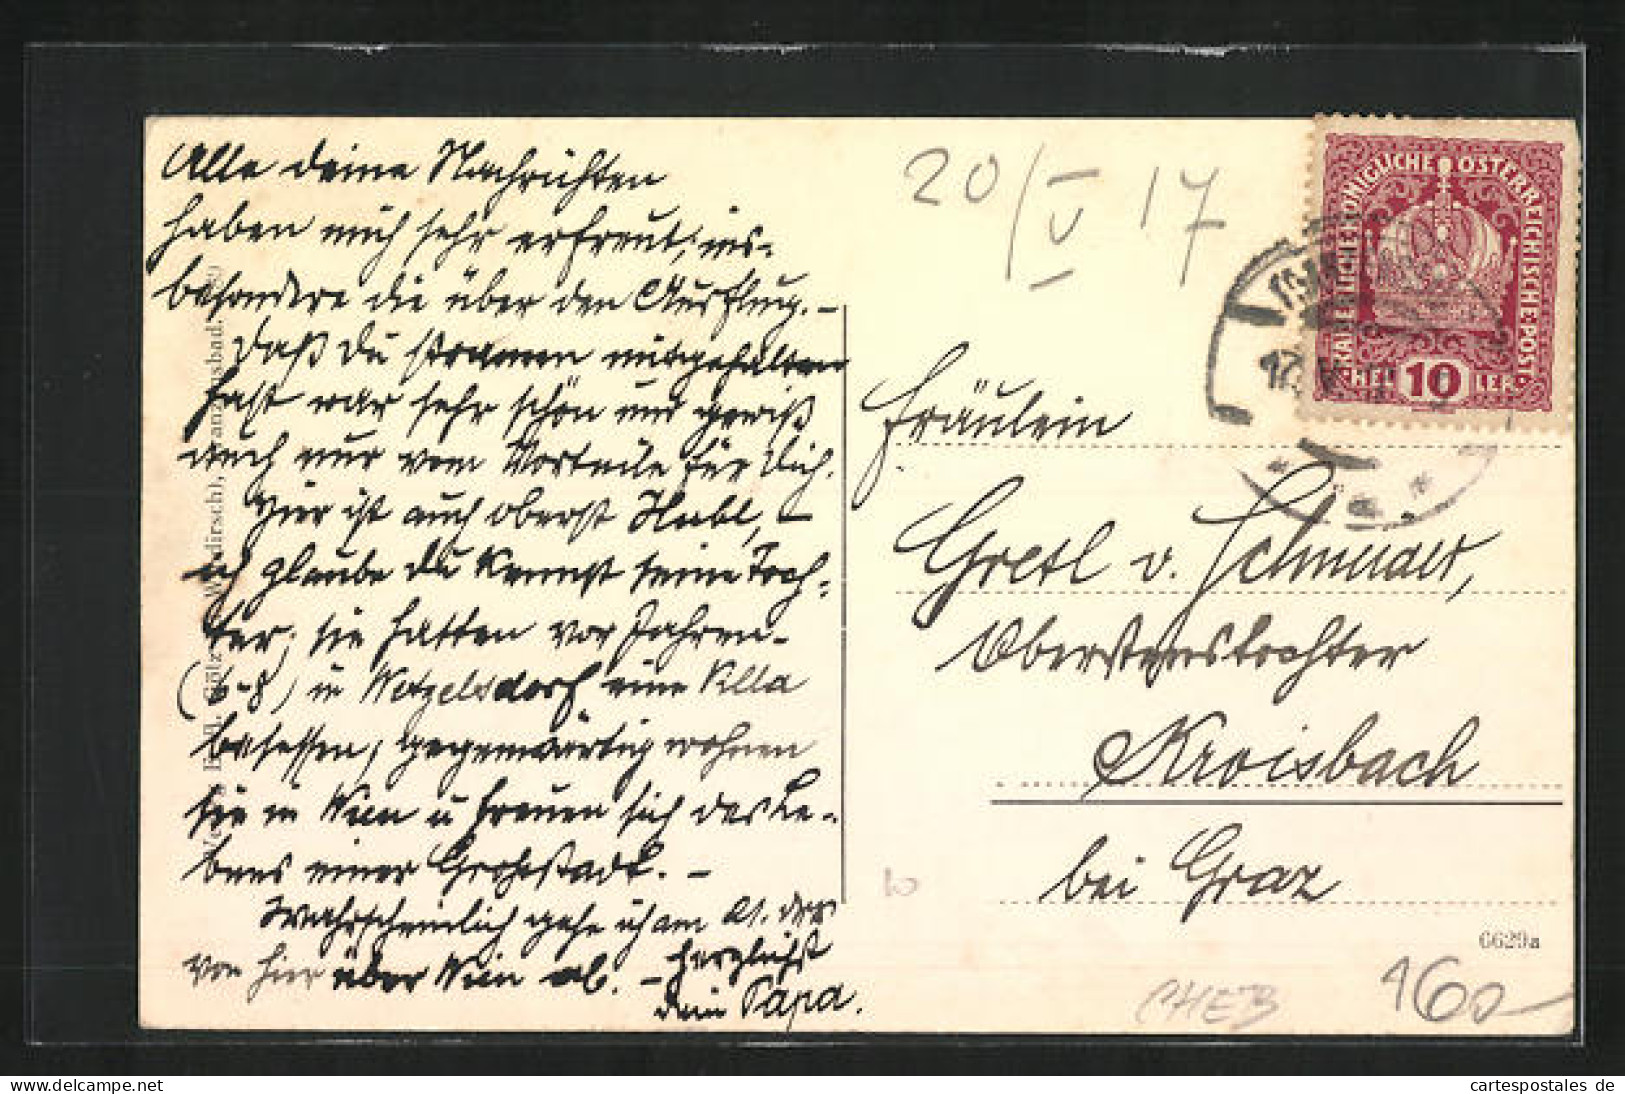 Alle deine Nachrichten
haben mich sehr erfreut, ins-
besondere die über den Ausflug. –
Daß du strammen mitgehalten
hast war sehr schön und gewiß
auch nur vom Vorteile für Dich.
Hier ist auch oberst Hubl, –
ich glaube du kennst seine Toch-
ter; sie hatten vor Jahren –
(6-8) in Wetzelsdorf eine Villa
besessen, gegenwärtig wohnen
sie in Wien u freuen sich des Le-
bens einer Großstadt. –
Wahrscheinlich gehe ich am 21. des
von hier über Wien ab. – herzlichst
dein Papa.
20/V 17
KAISERLICHE KÖNIGLICHE ÖSTERREICHISCHE POST
HEL 10 LER
Fräulein
Gretl v. Schmidt,
Oberstenstochter
Kroisbach
bei Graz
6629a
CHEB
160
10
cartespostales.de